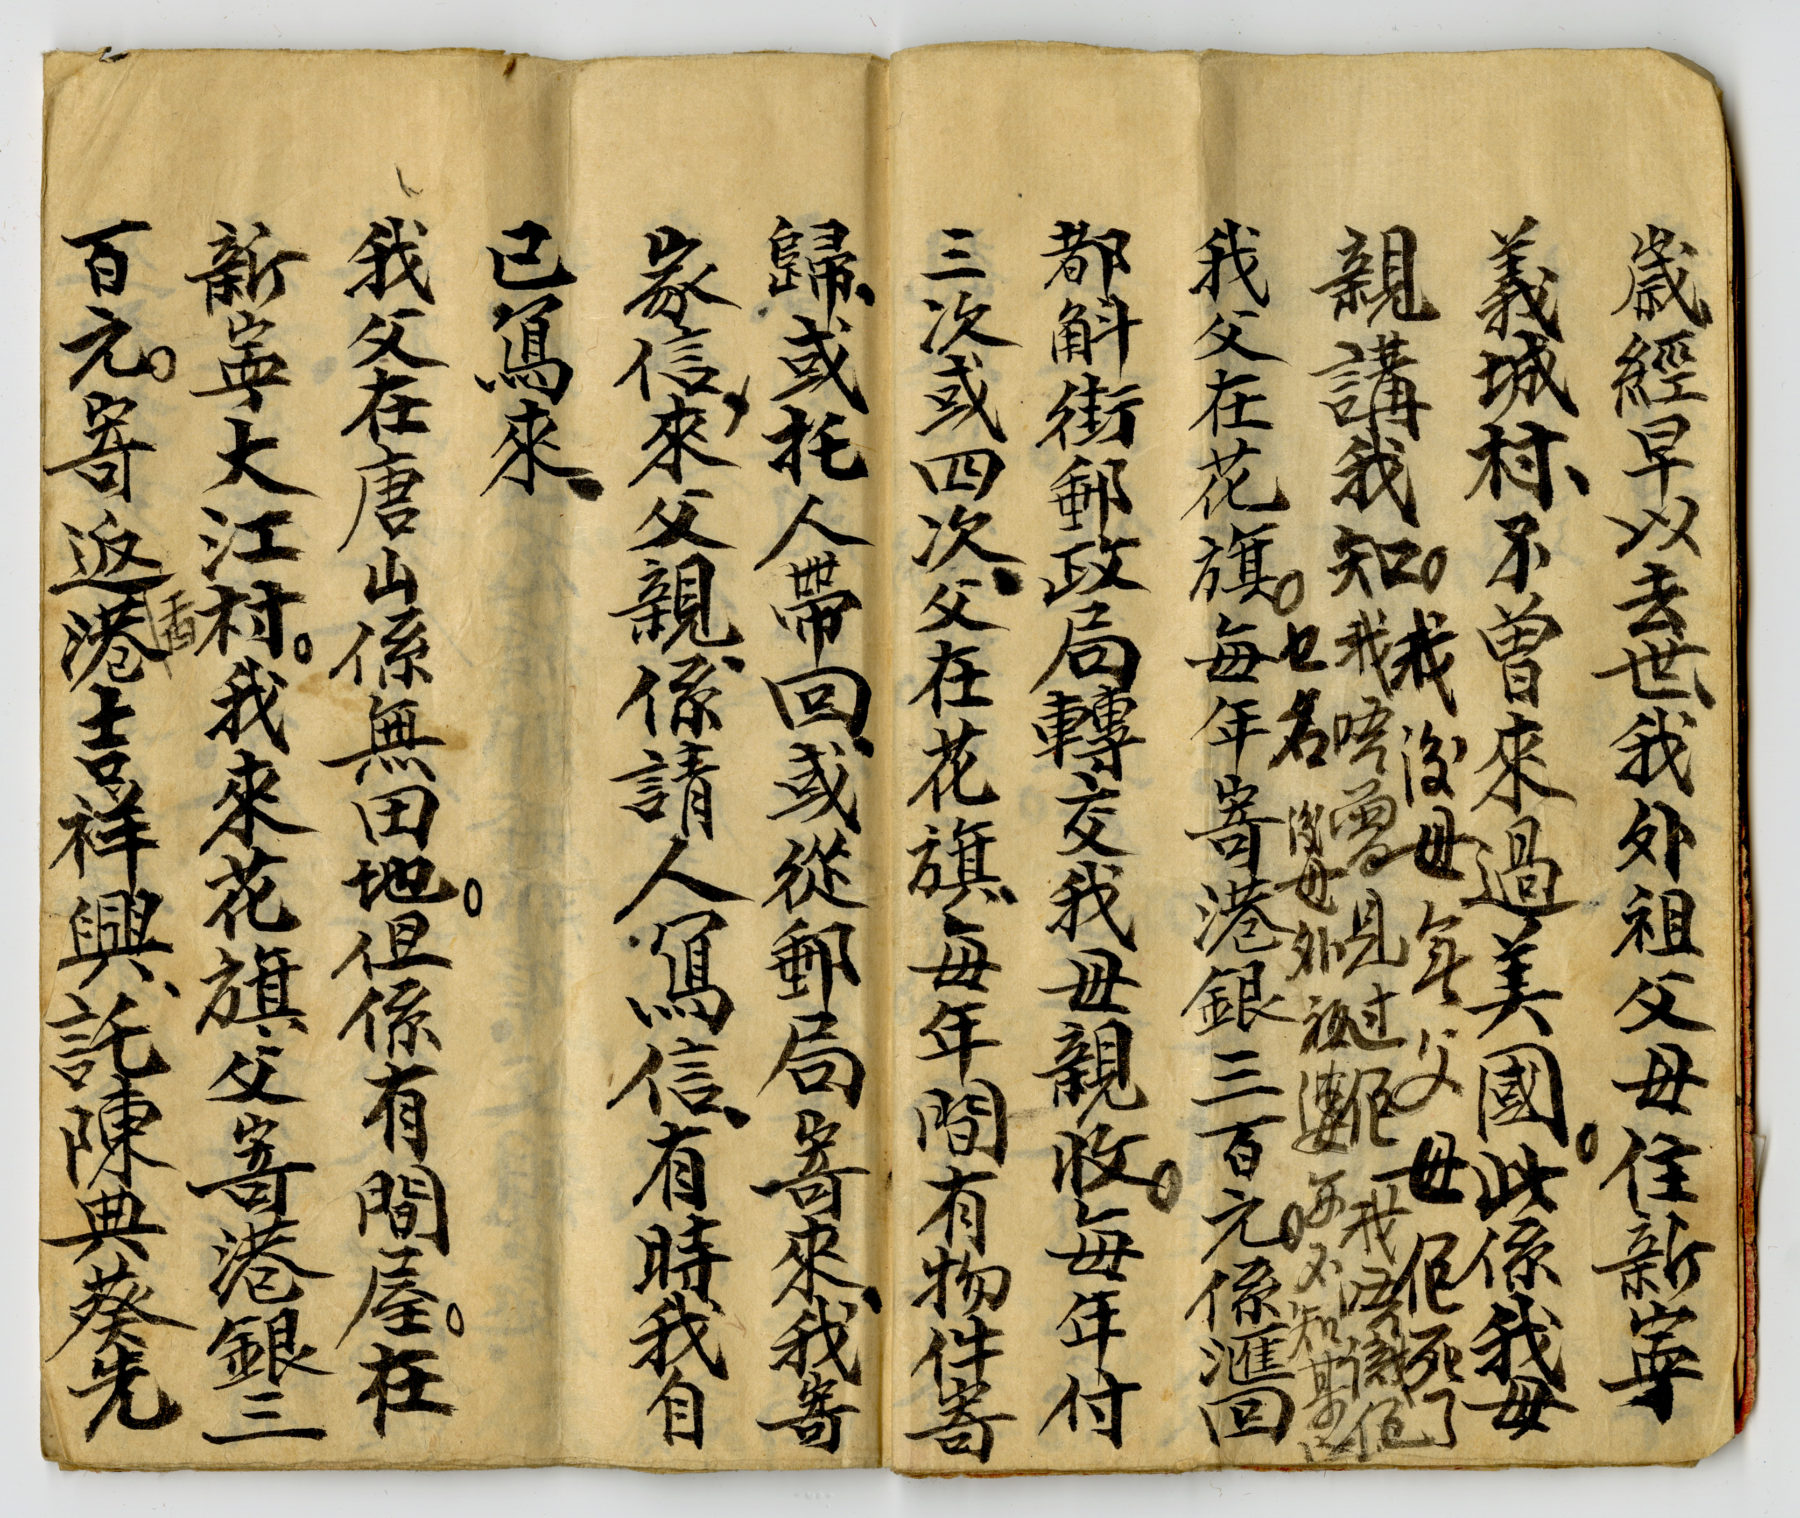 歲經早以去世、我外祖父母住新寧
義城村、不曾來過美國。此係我母
親講我知。我後母年父母佢死了
我唔曾見过佢 我唔識佢
乜名 後母外祖
我父在花旗。每年寄港銀三百元。係滙回
都斛街郵政局轉交我母親收。每年付
三次或四次、父在花旗、每年間有物件寄
歸、或托人帶回、或從郵局寄來、我寄
家信、來父親、係請人寫信、有時我自
已寫來、
我父在唐山係無田地。但係有間屋。在
新寧大江村。我來花旗父寄港銀三
百元。寄返香港吉祥興、託陳典葵先